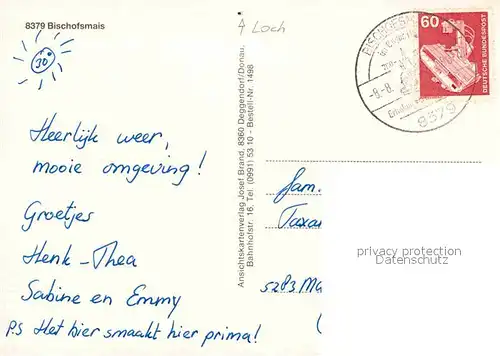 8379 Bischofsmais
4 Loch
30
Heerlijk weer,
mooie omgeving!
Groetjes
Henk - Thea
Sabine en Emmy
P.S Het bier smaakt hier prima!
Ansichtskartenverlag Josef Brand, 8360 Deggendorf/Donau,
Bahnhofstr. 16, Tel. (0991) 53 10 - Bestell-Nr. 1498
60
DEUTSCHE BUNDESPOST
-8.-8.
8379
fam.
Taxan
privacy protection
Datenschutz
5283 Ma